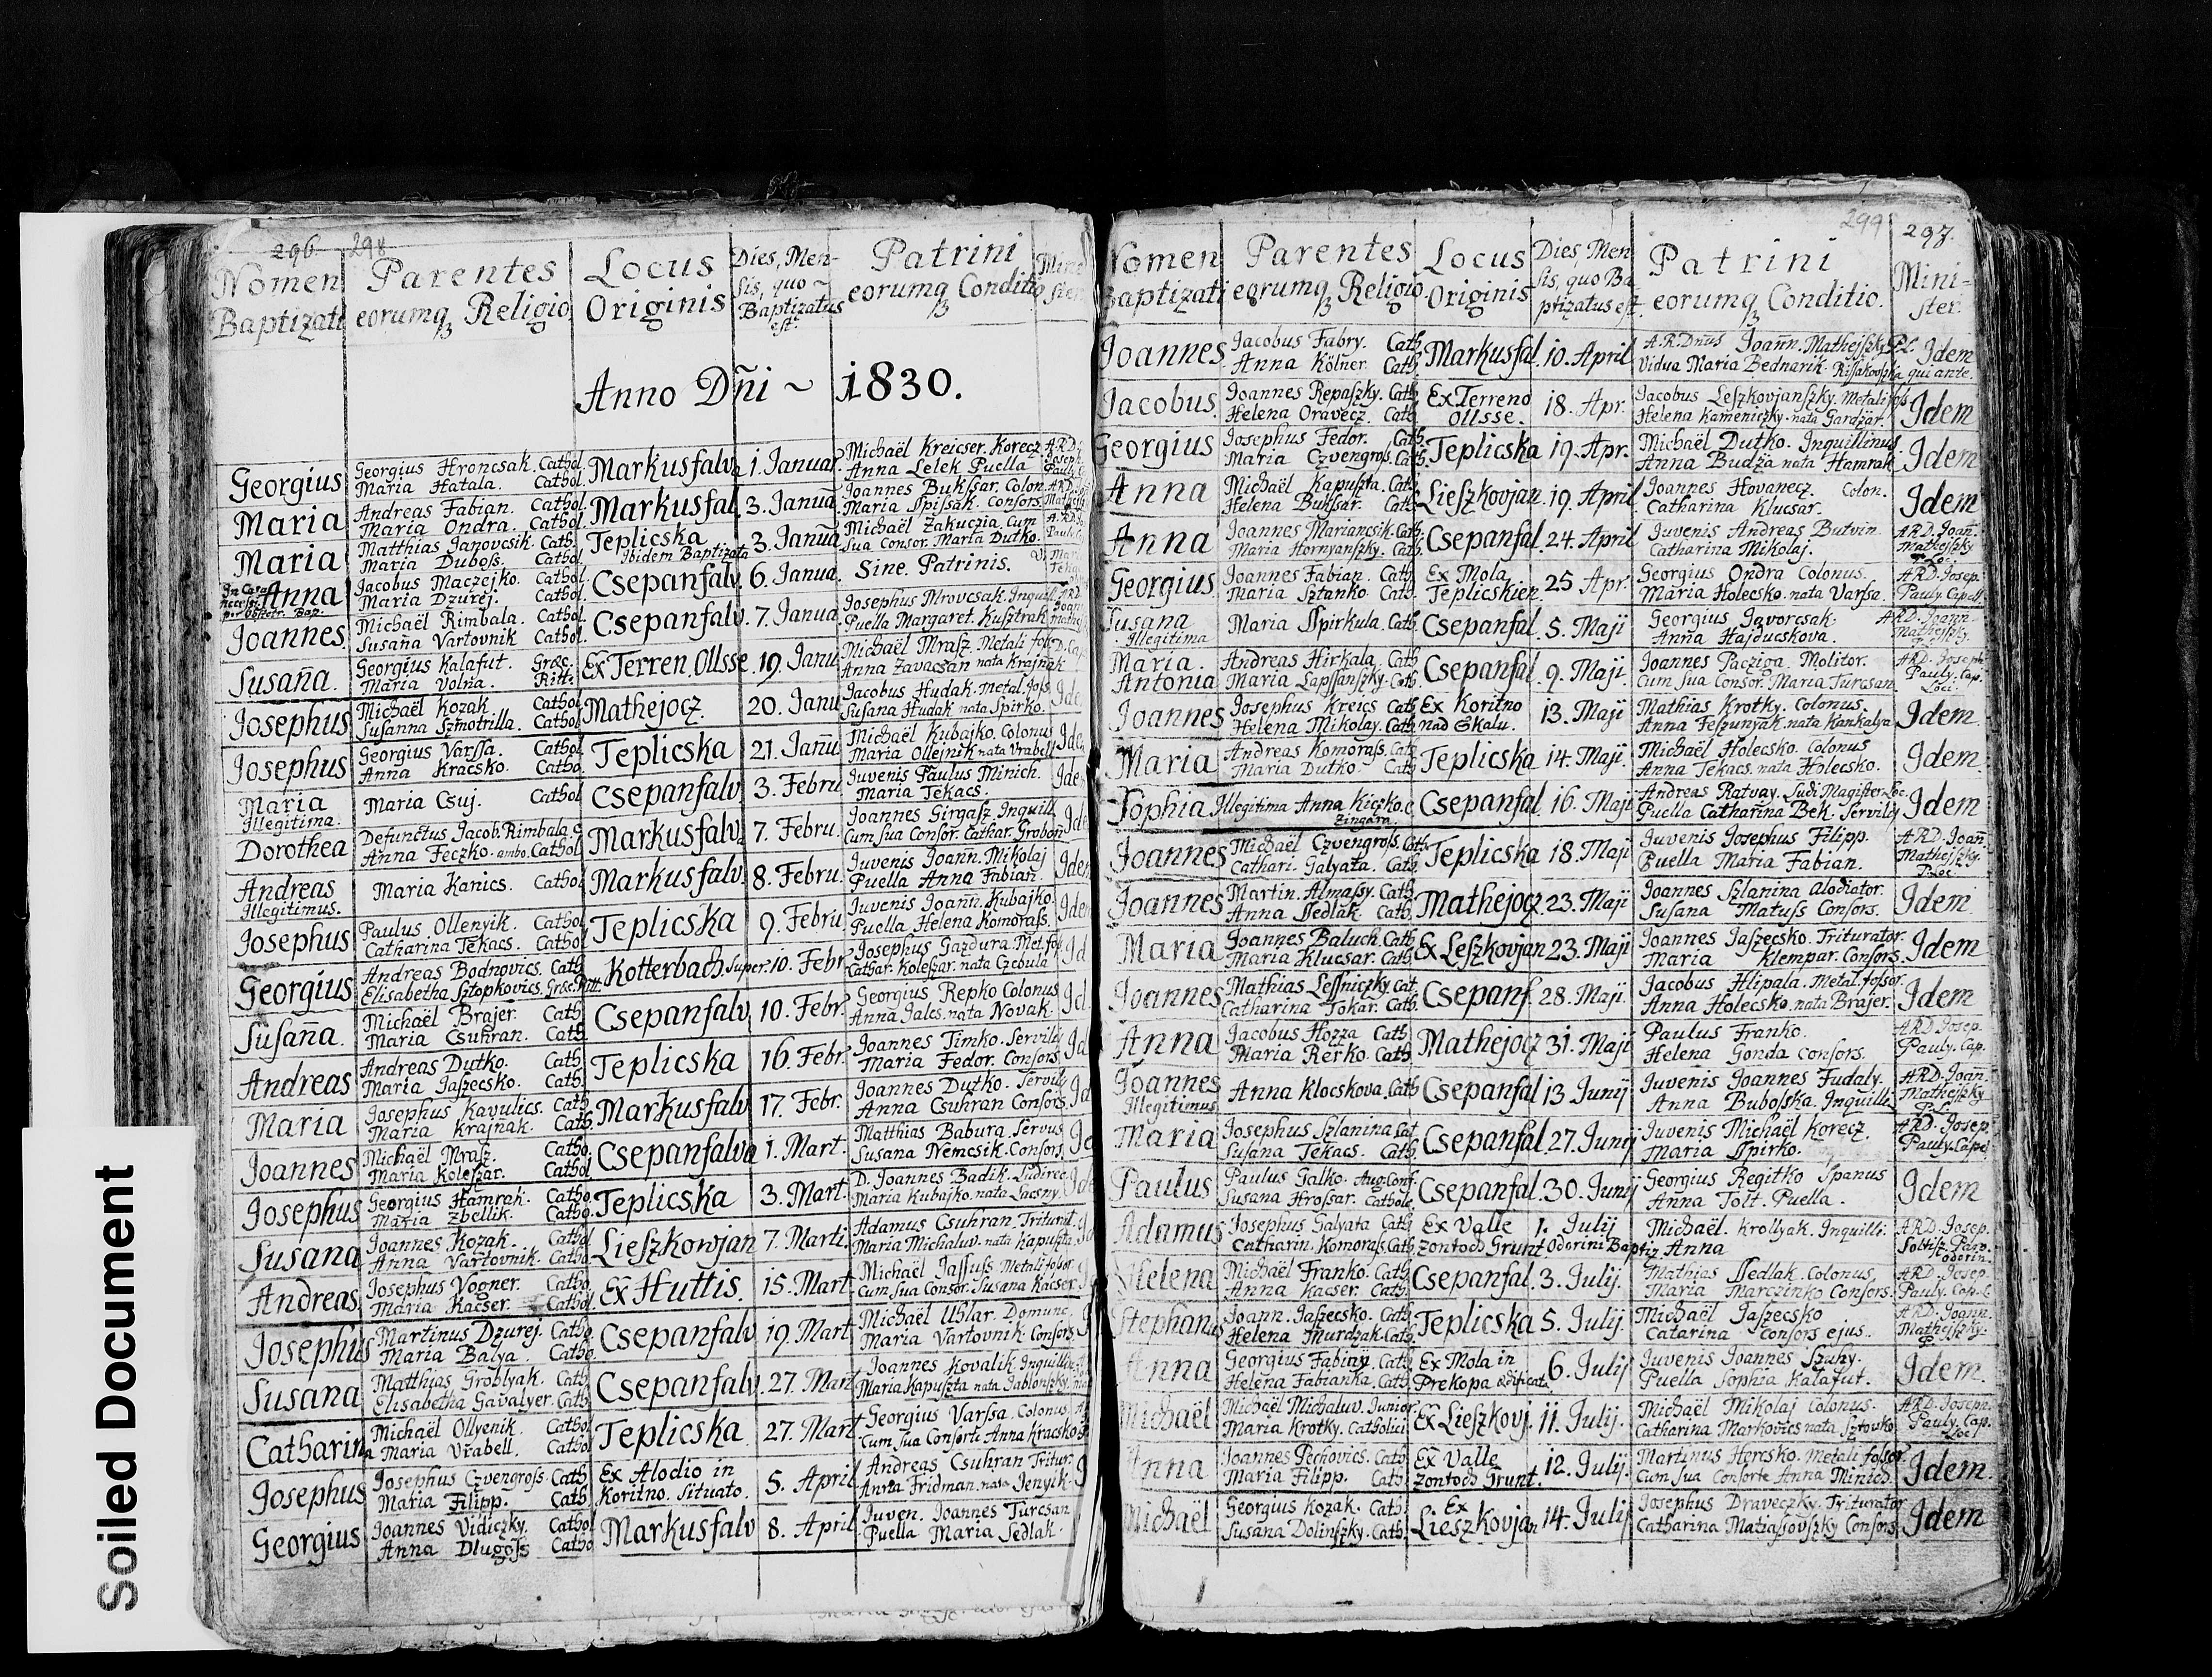 296. 298
Nomen Baptizati
Parentes eorumq Religio
Locus Originis
Dies, Mensis, quo Baptizatus est.
Patrini eorumq Conditio
Minister
Anno Dñi ~ 1830.
Georgius Georgius Hroncsak. Cathol. Markusfalva 1. Januar. Michaël Kreicser. Korecz
Maria Hatala. Cathol. Anna Lelek Puella
Maria Andreas Fabian. Cathol. Markusfal. 3. Januā Joannes Bukſsar. Colon.
Maria Ondra. Cathol. Maria Spiſsak. Consors.
Maria Matthias Janovcsik. Cath. Teplicska 3. Januā Michaël Zakuczia. Cum
Maria Duboſs. Cathol. Ibidem Baptizata Sua Consor. Maria Dutko.
Anna Jacobus Maczejko. Cathol. Csepanfalv. 6. Janua. Sine Patrinis.
Maria Dzurej. Cathol.
Joannes. Michaël Rimbala. Cathol. Csepanfalv. 7. Janua Josephus Mrovcsak. Inquil.
Susaña Vartovnik Cathol. Puella Margaret. Kusztrak
Susaña. Georgius Kalafut. Græc. Ex Terren. Ollsse. 19. Janu Michaël Mraſz. Metali fos
Maria Volña. Ritt. Anna Zavacsan nata Krajñak
Josephus Michaël Kozak Cathol. Mathejocz. 20. Janu Jacobus Hudak. metal. foſs
Susanna Szmotrilla. Cathol. Susana Hudak nata Spirko.
Josephus Georgius Varſsa. Cathol. Teplicska 21. Januū Michaël Kubajko. Colonus
Anna Kracsko. Catho. Maria Ollejnik nata Vrabell
Maria Maria Csuj. Cathol. Csepanfalv. 3. Febru Juvenis Paulus Minich.
Illegitima. Maria Tekacs.
Dorothea Defunctus Jacob. Rimbala c. Markusfalv. 7. Febru. Joannes Girgaſz Inquill
Anna Feczko. ambo. Cathol. Cum Sua Consor. Cathar. Groboñ
Andreas Maria Kanics. Cathol. Markusfalv. 8. Febru. Juvenis Joann. Mikolaj
Illegitimus. Puella Anna Fabian.
Josephus Paulus Ollenyik. Cathol. Teplicska 9. Febru Juvenis Joann. Kubajko.
Catharina Tekacs. Cathol. Puella Helena Komoraſs.
Georgius Andreas Bodnovics. Cath. Kotterbach. Super. 10. Febr. Josephus Gazdura. Met. foſ
Elisabetha Sztopkovics. Græc. Ritt. Cathar. Koleſzar. nata Czebula
Susaña. Michaël Brajer. Cath. Csepanfalv. 10. Febr. Georgius Repko Colonus
Maria Csuhran. Cath. Anna Jalcs. nata Novak.
Andreas Andreas Dutko. Cath. Teplicska 16. Febr. Joannes Timko. Servilis
Maria Jaſzecsko. Cath. Maria Fedor. Consors
Maria Josephus Kavulics. Cath. Markusfalv 17. Febr. Joannes Dutko. Servilis
Maria Krajñak. Cath. Anna Csuhran Consors
Joannes Michaël Mraſz. Catho. Csepanfalva 1. Mart. Matthias Babura. Servus
Maria Koleſzar. Cathol. Susana Nemcsik. Consors.
Josephus Georgius Hamrak. Catho. Teplicska 3. Mart. D. Joannes Badik. Ludirec.
Maria Zbellik. Catho. Maria Kubajko. nata Lacsny.
Susana Joannes Kozak. Cathol Lieſzkowjan 7. Marti. Adamus Csuhran. Triturat.
Anna Vartovnik. Catho. Maria Michaluv. nata Kapuſzta.
Andreas Josephus Vogner. Catho. Ex Huttis. 15. Mart. Michaël Jaſsuſs Metali foſsor
Maria Kacser. Cathol. Cum Sua Consor. Susana Kacser.
Josephus Martinus Dzurej. Catho. Csepanfalv. 19. Mart. Michaël Uhlar. Domunc.
Maria Balya. Catho. Maria Vartovnik. Consors.
Susana Matthias Groblyak. Cath. Csepanfalv. 27. Mart. Joannes Kovalik. Inquilin
Elisabetha Gavalyer. Cath. Maria Kapuſzta nata Jablonſzky.
Catharina Michaël Ollyenik. Cathol Teplicska. 27. Mart Georgius Varſsa. Colonus.
Maria Vrabell. Cathol Cum Sua Consorte Anna Kracsko
Josephus Josephus Czvengroſs. Cath. Ex Alodio in 5. April Andreas Csuhran Tritur.
Maria Filipp. Cath. Koritno. Situato. Anna Fridman. nata Jenyik.
Georgius Joannes Vidiczky. Cathol. Markusfalv 8. April. Juven. Joannes Turcsan
Anna Dlugoſs Catho Puella Maria Sedlak.
299 297.
Nomen Baptizati
Parentes eorumq Religio
Locus Originis
Dies, Mensis, quo Baptizatus est.
Patrini eorumq Conditio.
Minister.
Joannes Jacobus Fabry. Cath. Markusfal. 10. April A.R.Dnus Joann. Mathejſzky P.L. Idem
Anna Kölner. Cath. Vidua Maria Bednarik. qui ante.
Jacobus. Joannes Repaſzky. Cath. Ex Terreno 18. Apr. Jacobus Leſzkovjanſzky. Metali foſs Idem
Helena Oravecz. Cath. Ollsse. Helena Kameniczky. nata Gardzar.
Georgius Josephus Fedor. Cath. Teplicska 19. Apr. Michaël Dutko. Inquillinus Idem
Maria Czvengroſs. Cath. Anna Budza nata Hamrak
Anna Michaël Kapuſzta. Cath. Lieſzkovjan. 19. April Joannes Hovanecz. Colon. Idem
Helena Bukſsar. Cath. Catharina Klucsar.
Anna Joannes Mariancsik. Cath. Csepanfal. 24. April Juvenis Andreas Butvin A.R.D. Joan.
Maria Hornyanſzky. Cath. Catharina Mikolaj. Mathejſzky P. Loc.
Georgius Joannes Fabian. Cath. Ex Mola 25 Apr. Georgius Ondra Colonus. A.R.D. Josep.
Maria Sztanko. Cath. Teplicskien Maria Holecsko. nata Varſsa. Pauly. Capell.
Susana Maria Spirkula. Cath. Csepanfal. 5. Maji Georgius Javorcsak. A.R.D. Joann.
Illegitima Anna Hajducskova. Mathejſzky.
Maria. Andreas Hirkala. Cath. Csepanfal 9. Maji. Joannes Pacziga. Molitor. A.R.D. Joseph.
Antonia Maria Lapſsanſzky. Cath. Cum Sua Consor. Maria Turcsan. Pauly. Cap. Loci.
Joannes Josephus Kreics Cath. Ex Koritno 13. Maji Mathias Krotky. Colonus. Idem.
Helena Mikolay. Cath. nad Skalu. Anna Feſzunyak. nata Kankalya
Maria Andreas Komoraſs. Cath. Teplicska 14. Maji. Michaël Holecsko. Colonus Idem.
Maria Dutko. Cath. Anna Tekacs. nata Holecsko.
Sophia Illegitima Anna Kiczko. C. Csepanfal. 16. Maji Andreas Ratvay. Ludi Magister Loc. Idem
Zingara. Puella Catharina Bek. Servilis
Joannes Michaël Czvengroſs. Cath. Teplicska 18. Maji Juvenis Josephus Filipp. A.R.D. Joañ.
Cathari. Galyata. Cath. Puella Maria Fabian. Mathejſzky. P. Loc.
Joannes Martin. Almaſsy. Cath. Mathejocz 23. Maji Joannes Szlanina Alodiator. Idem
Anna Sedlak. Cath. Susana Matuſs Consors.
Maria Joannes Baluch. Cath. Ex Leſzkovjan 23. Maji Joannes Jaſzecsko. Triturator. Idem
Maria Klucsar. Cath. Maria Klempar. Consors.
Joannes Mathias Leſsniczky. Cat. Csepanf. 28. Maji. Jacobus Hlipala. Metal. foſsor. Idem
Catharina Tokar. Cath. Anna Holecsko. nata Brajer.
Anna Jacobus Hozza Cath. Mathejocz 31. Maji Paulus Franko. A.R.D. Josep.
Maria Rerko. Cath. Helena Gonda consors. Pauly. Cap.
Joannes Anna Klocskova. Cath. Csepanfal 13. Junij Juvenis Joannes Fudaly. A.R.D. Joan.
Illegitimus Anna Buboſska. Inquilli. Mathejſzky P.L.
Maria Josephus Szlanina Cat. Csepanfal 27. Junij Juvenis Michaël Korecz. A.R.D. Josep.
Susana Tekacs. Cath. Maria Spirko. Pauly. Capel
Paulus Paulus Galko. Aug. Conf. Csepanfal. 30. Junij Georgius Regitko Spanus Idem
Susana Hroſsar. Catholc. Anna Tolt. Puella.
Adamus Josephus Galyata Cath. Ex Valle 1. Julij Michaël Krollyak. Inquilli. A.R.D. Josep.
Catharin. Komoraſs. Cath. Zontoch Grunt Odorini Baptiz. Anna Soltisz. Paro. Odorin.
Helena Michaël Franko. Cath. Csepanfal. 3. Julij. Mathias Sedlak. Colonus A.R.D. Josep.
Anna Kacser. Cath. Maria Marczinko Consors. Pauly. Cap. L.
Stephanus Joann. Jaſzecsko. Cath. Teplicska 5. Julij. Michaël Jaſzecsko A.R.D. Joann.
Helena Murdzak. Cath. Catarina Consors ejus. Mathejſzky.
Anna Georgius Fabiny. Cath. Ex Mola in 6. Julij Juvenis Joannes Szuhy. Idem.
Helena Fabianka. Cath. Prekopa ædificata Puella Sophia Kalafut.
Michaël Michaël Michaluv. Junior. Ex Lieſzkovj. 11. Julij. Michaël Mikolaj Colonus. A.R.D. Joseph.
Maria Krotky. Catholici Catharina Markovics nata Sztovko. Pauly. Cap. Loci
Anna Joannes Pechovics. Cath. Ex Valle 12. Julij. Martinus Hercsko. Metali foſsor Idem.
Maria Filipp. Cath. Zontoch Grunt. Cum Sua Consorte Anna Minich.
Michaël Georgius Kozak. Cath. Ex 14. Julij Josephus Draveczky. Triturator Idem
Susana Dolinſzky. Cath. Lieszkovjan Catharina Matiaſsovſzky Consors
Soiled Document